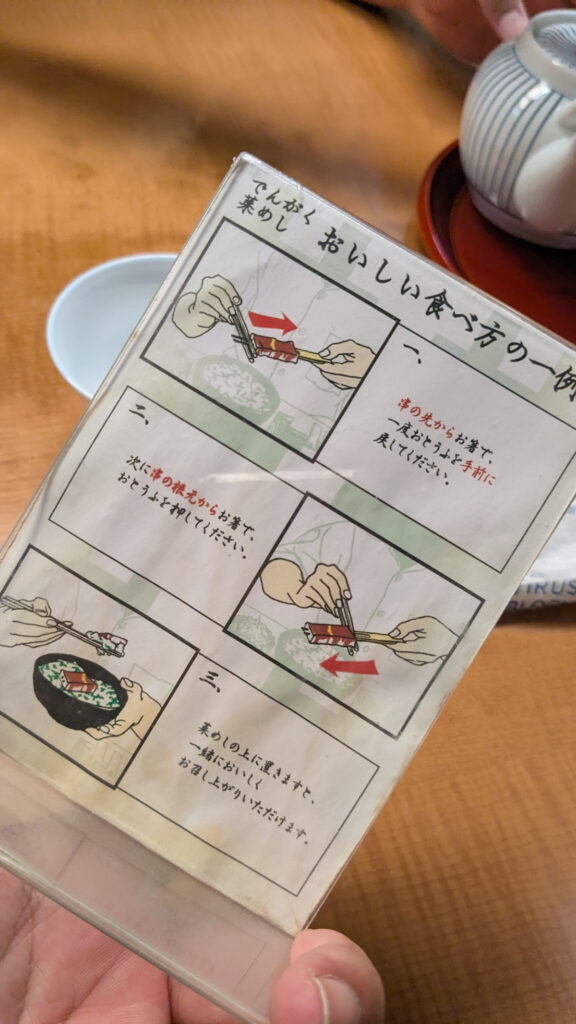 でんがく
菜めし
おいしい食べ方の一例
一、
串の先からお箸で、
一度おとうふを手前に
戻してください。
二、
次に串の根元からお箸で、
おとうふを押してください。
三、
菜めしの上に置きますと、
一緒においしく
お召し上がりいただけます。